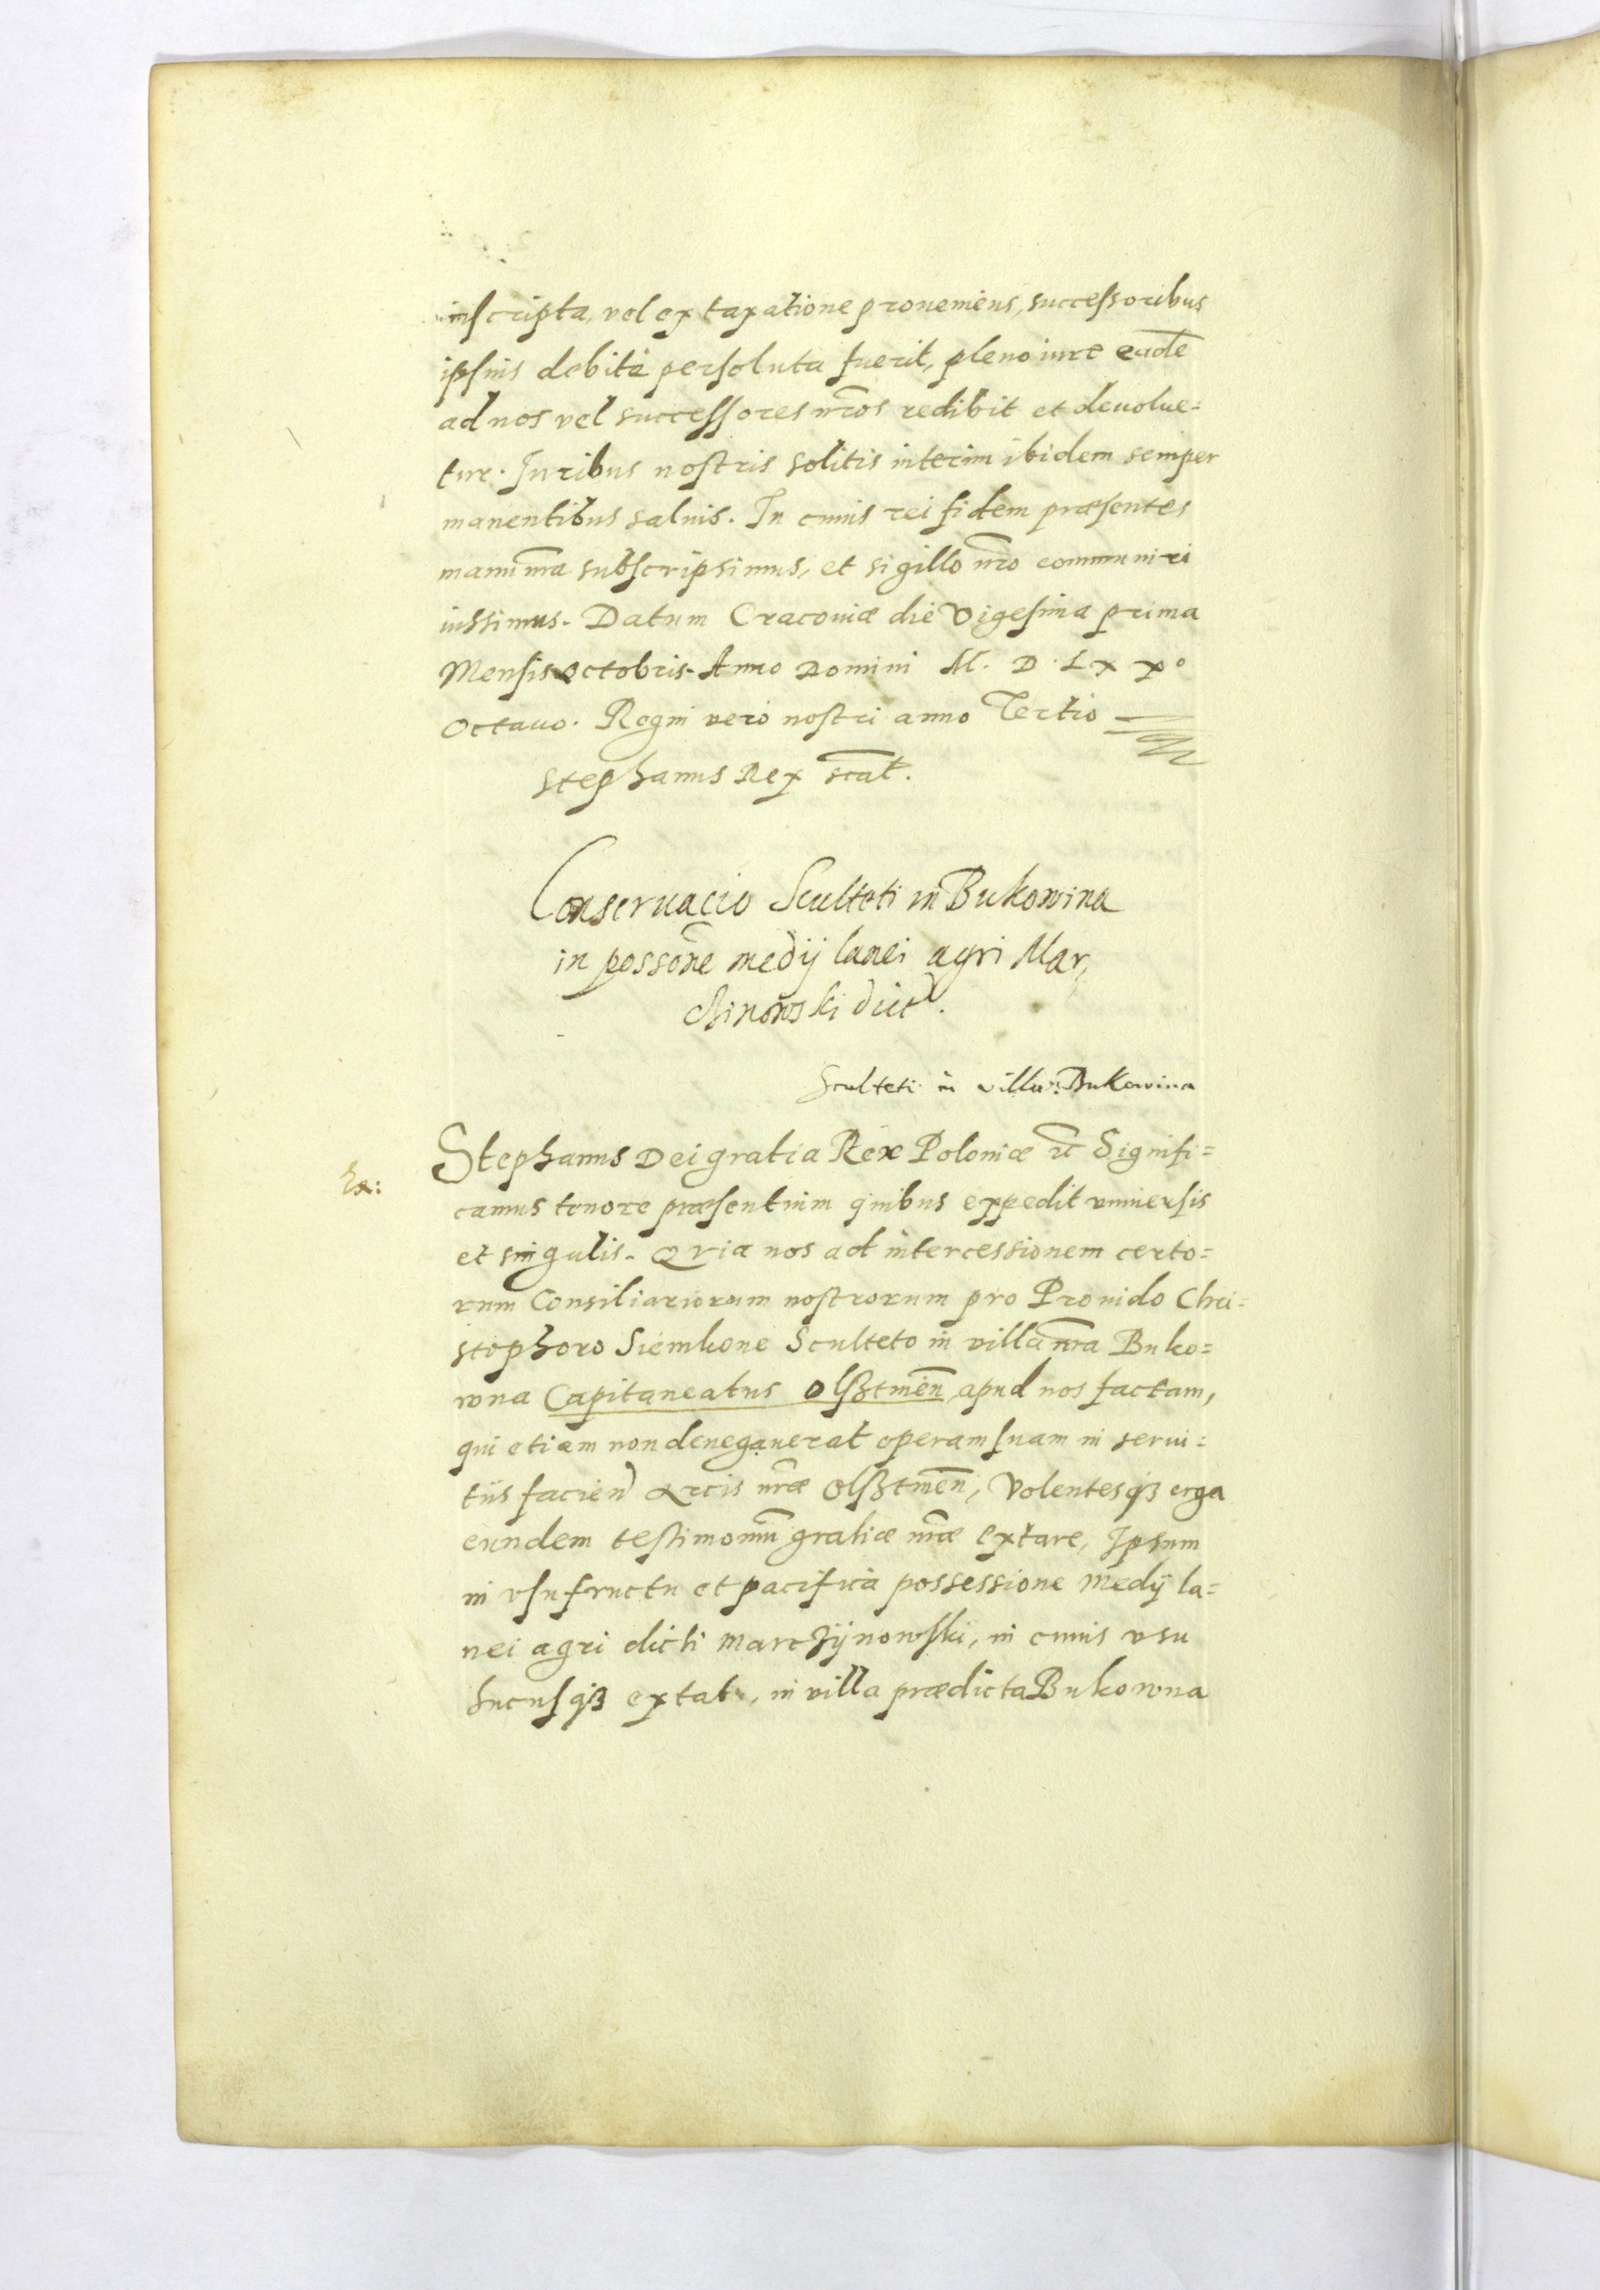 inscripta, vel ex taxatione proueniens, successoribus
ipsius debita persoluta fuerit, pleno iure eadē
ad nos vel successores nr̄os redibit et deuolue=
tur. Iuribus nostris solitis interim ibidem semper
manentibus saluis. In cuius rei fidem præsentes
manu nr̄a subscripsimus, et sigillo nr̄o communiri
iussimus. Datum Cracouiæ die Vigesima prima
Mensis Octobris. Anno Domini M. D. Lxxº
Octauo. Regni vero nostri anno Tertio
Stephanus Rex sc̄at.
Conseruacio Sculteti in Bukowina
in possōne medij lanei agri Mar,
chinowski dict.
Sculteti in villa: Bukowina
Stephanus Dei gratia Rex Poloniæ rc̄ Signifi=
Ex:
camus tenore præsentium quibus expedit vniuersis
et singulis. Quia nos ad intercessionem certo=
rum Consiliariorum nostrorum pro Prouido Chri=
stophoro Siemkone Sculteto in villa nr̄a Buko=
wna Capitaneatus Olsztinēn apud nos factam,
qui etiam non denegauerat operam suam in serui=
tiis facien Arcis nr̄æ Olsztinēn, Volentesqꝫ erga
eundem testimoniū gratiæ nr̄æ extare, Ipsum
in vsufructu et pacifica possessione medij la=
nei agri dicti Marczijnowski, in cuius vsu
hucusqꝫ extat, in villa prædicta Bukowna